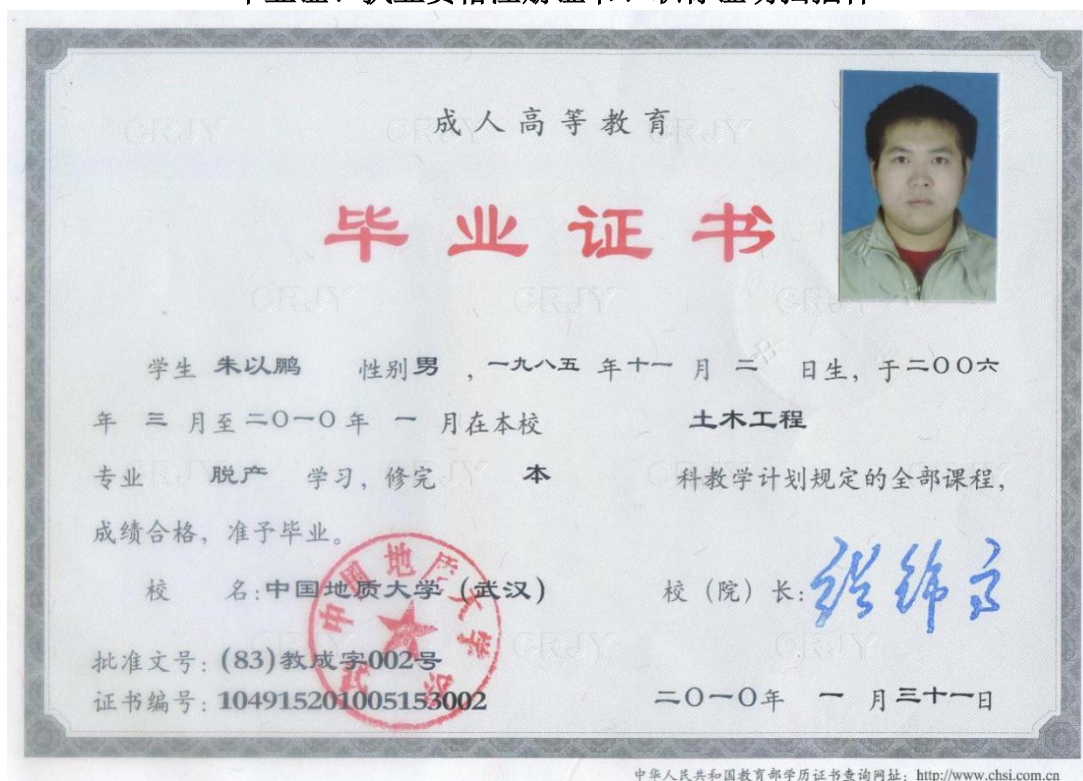 成人高等教育
毕业证书
学生 朱以鹏 性别 男 ，一九八五 年 十一 月 二 日生，于二００六
年 三 月至二０一０年 一 月在本校 土木工程
专业 脱产 学习，修完 本 科教学计划规定的全部课程，
成绩合格，准予毕业。
校 名:中国地质大学（武汉） 校（院）长:
批准文号: (83)教成字002号
证书编号: 104915201005153002 二０一０年 一 月三十一日
中华人民共和国教育部学历证书查询网址: http://www.chsi.com.cn